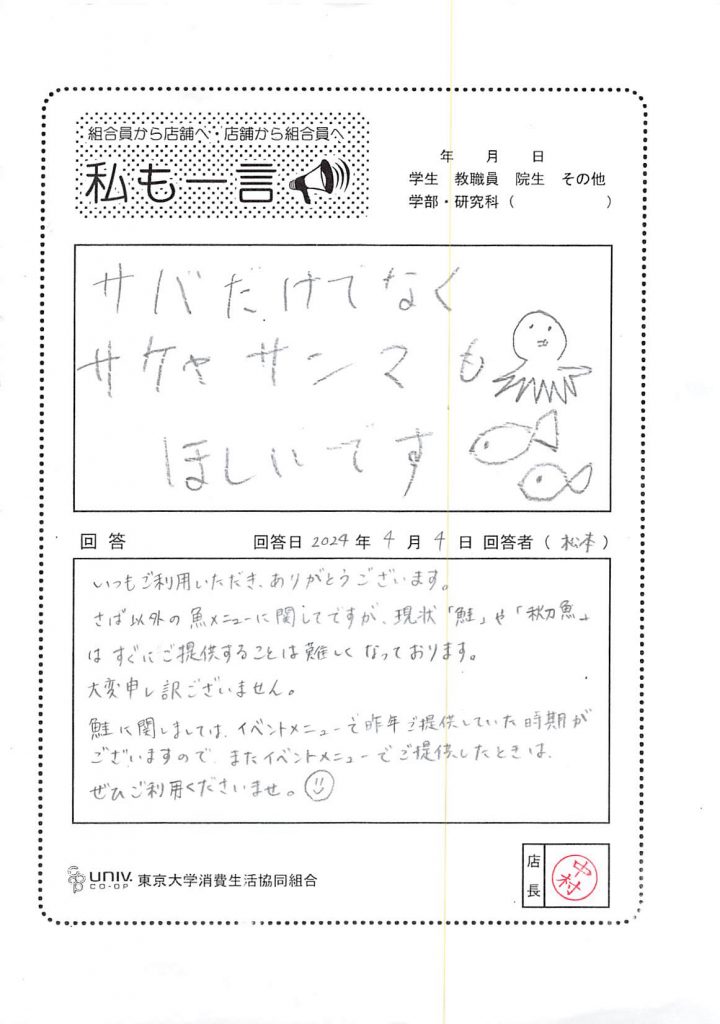 組合員から店舗へ・店舗から組合員へ
私も一言
年 月 日
学生 教職員 院生 その他
学部・研究科（ ）
サバだけでなく
サケヤサンマも
ほしいです
回答 回答日 2024年 4月 4日 回答者（松本）
いつもご利用いただき、ありがとうございます。
さば以外の魚メニューに関してですが、現状「鮭」や「秋刀魚」
はすぐにご提供することは難しくなっております。
大変申し訳ございません。
鮭に関しましては、イベントメニューで昨年ご提供していた時期が
ございますので、またイベントメニューでご提供したときは、
ぜひご利用くださいませ。
UNIV. CO-OP 東京大学消費生活協同組合
店長 中村